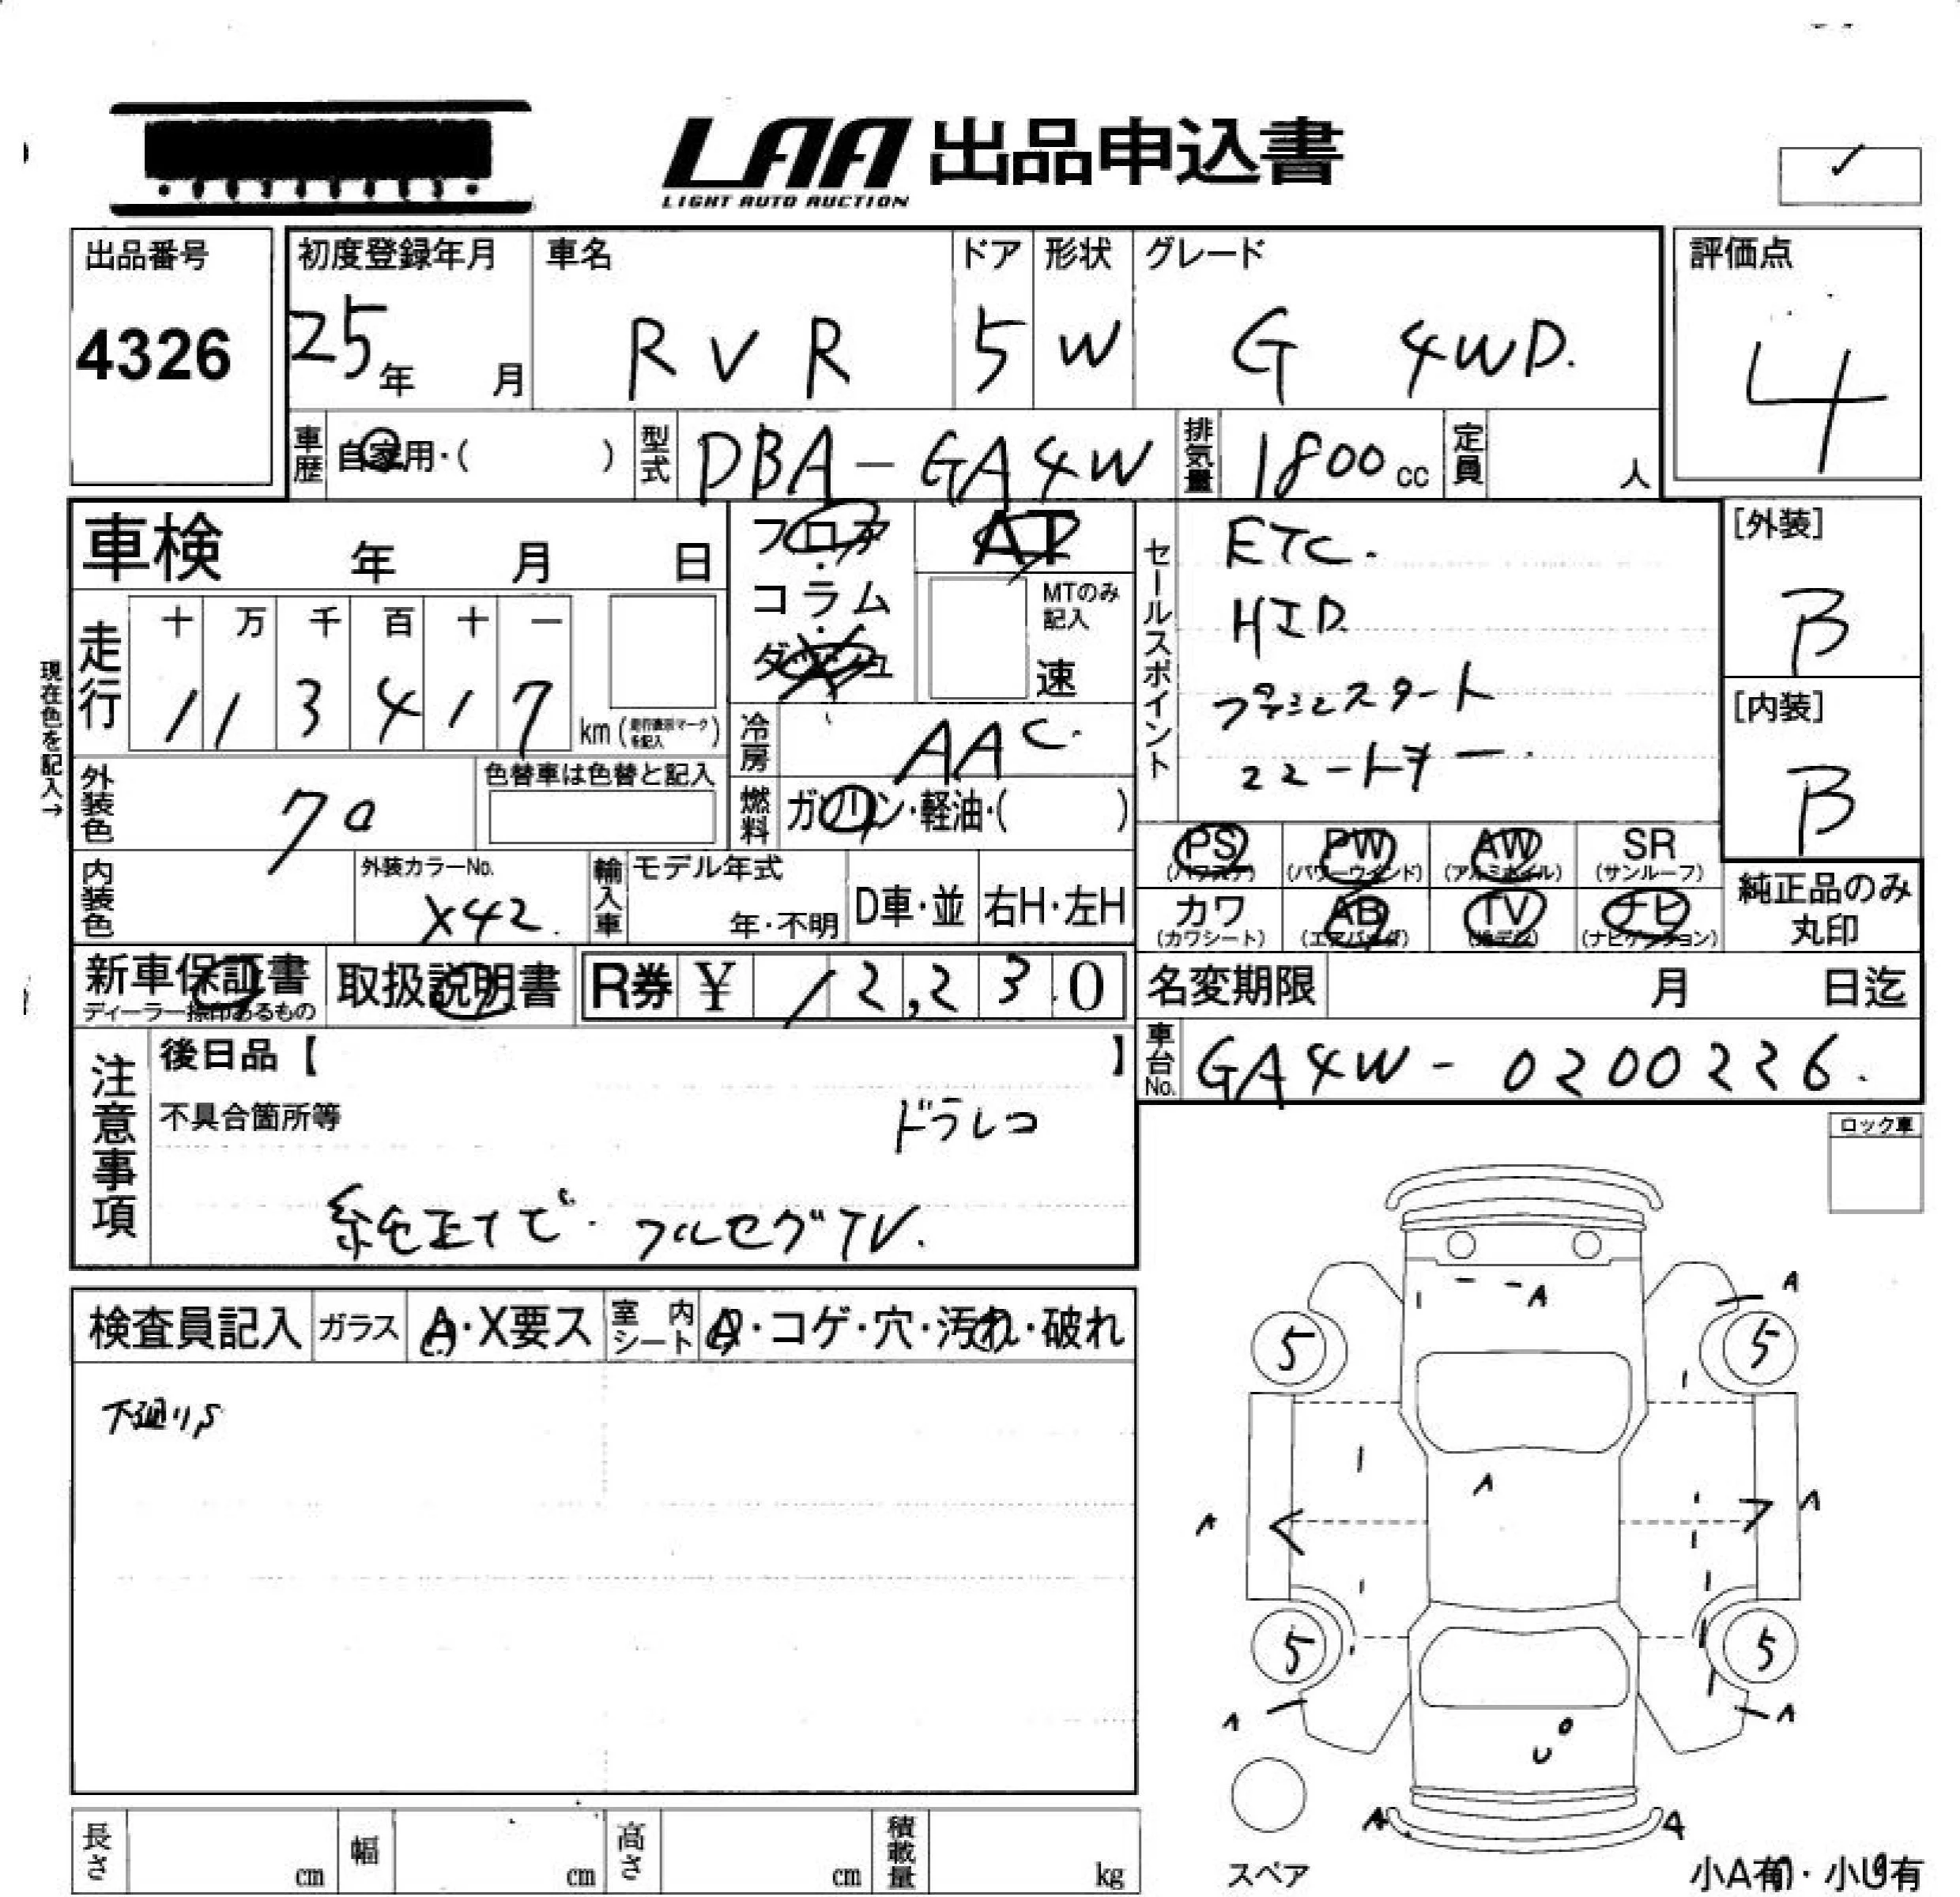 LAA 出品申込書
LIGHT AUTO AUCTION
出品番号 初度登録年月 車名 ドア 形状 グレード 評価点
4326 25年 月 RVR 5 W G 4WD. 4
車歴 自家用・( ) 型式 DBA-GA4W 排気量 1800cc 定員 人
車検 年 月 日 フロア AT
コラム MTのみ記入
ダッシュ 速
セールスポイント ETC.
HID.
[外装] B
現在色を記入→
走行 十 万 千 百 十 一
1 1 3 4 1 7 km (走行表示マークを記入)
[内装] B
冷房 AAC.
外装色 色替車は色替と記入
燃料 ガソリン・軽油・( )
PS (パワステ) PW (パワーウインド) AW (アルミホイル) SR (サンルーフ)
内装色 外装カラーNo. X42. 輸入車 モデル年式 年・不明 D車・並 右H・左H
カワ (カワシート) AB (エアバッグ) TV (地デジ) ナビ (ナビゲーション) 純正品のみ丸印
新車保証書 取扱説明書 R券 ¥ 12,230 名変期限 月 日迄
ディーラー捺印あるもの
車台No. GA4W-0200226.
注意事項 後日品【 】
不具合箇所等 ドラレコ
純正ナビ. フルセグTV.
ロック車
検査員記入 ガラス A・X要ス 室内シート A・コゲ・穴・汚れ・破れ
下廻りS
A A
5 5
A
A A
5 5
A A
U
A A
長さ cm 幅 cm 高さ cm 積載量 kg
スペア 小A有・小U有